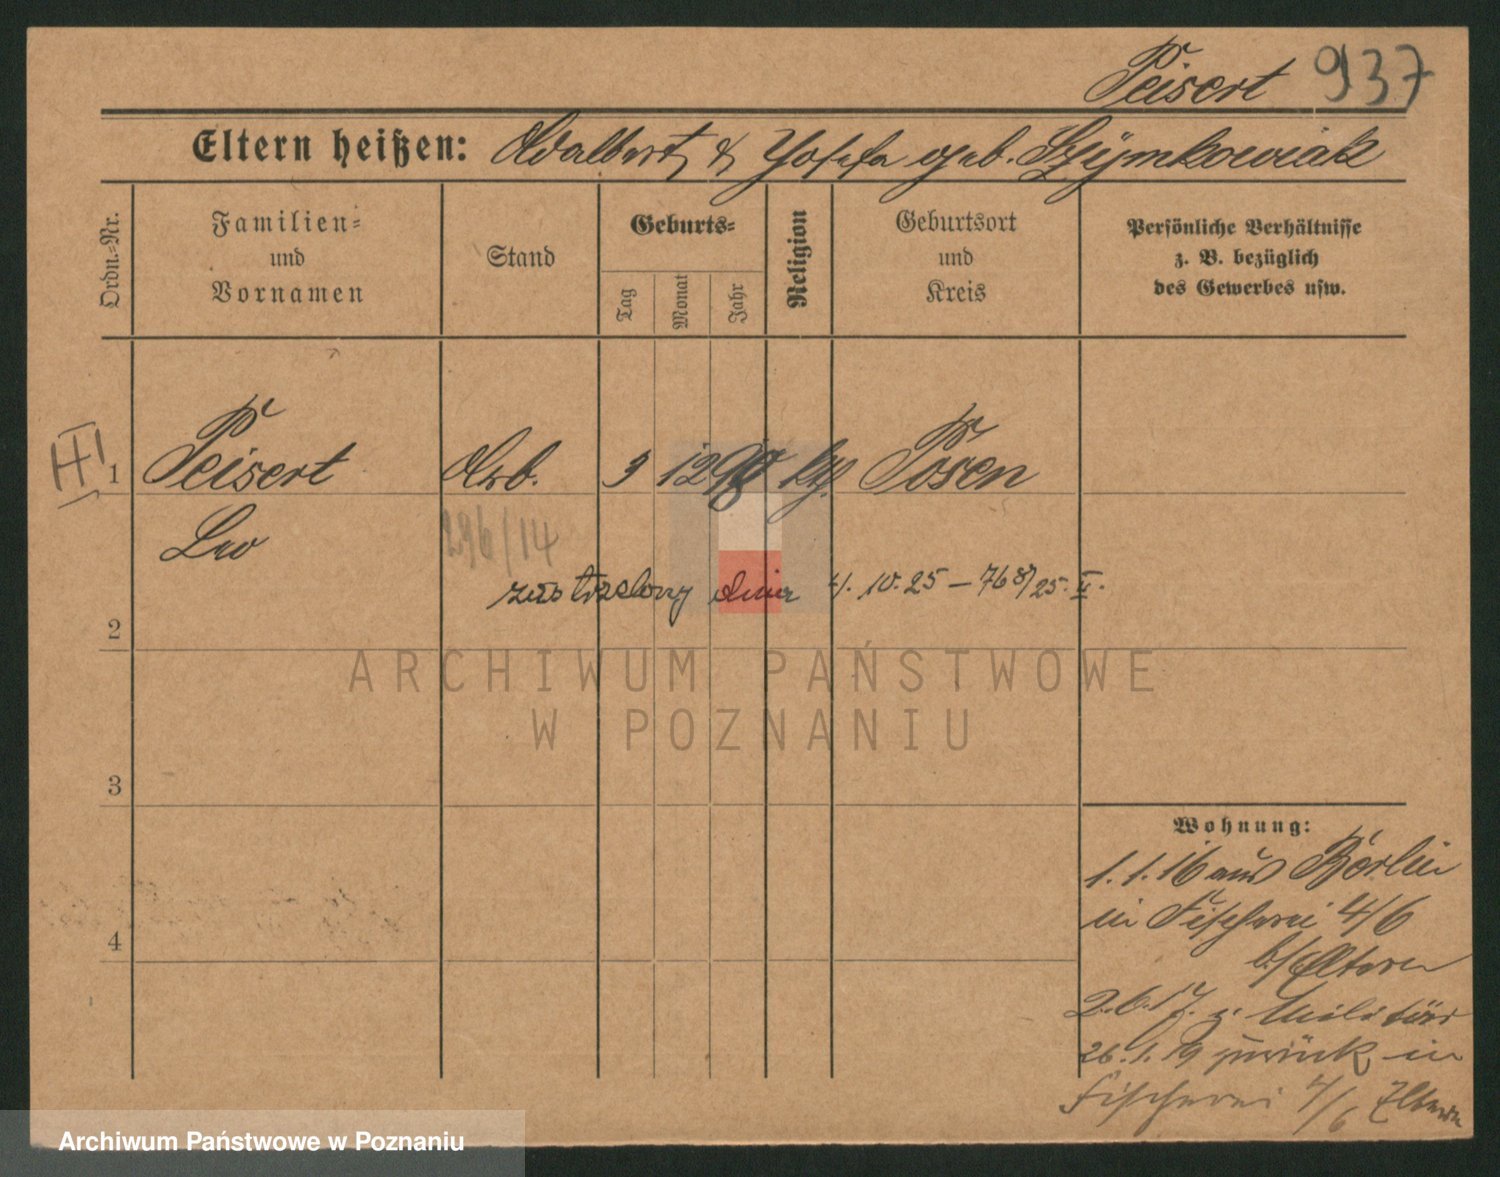 Peisert 937
Eltern heißen: Adalbert & Josefa geb. Szymkowiak
Ordn.-Nr.
Familien-
und
Vornamen
Stand
Geburts-
Tag
Monat
Jahr
Religion
Geburtsort
und
Kreis
Persönliche Verhältnisse
z. B. bezüglich
des Gewerbes usw.
1 Peisert Arb. 3 12 98 kth. Posen
Leo
296/14
zastrzelony dnia 4. 10. 25 – 768/25. II.
2
ARCHIWUM PAŃSTWOWE
W POZNANIU
3
Wohnung:
1. 1. 16 aus Berlin
in Fischerei 4/6
b/Eltern
2. 6. 17. z. Militär
26. 1. 19 zurück in
Fischerei 4/6 Eltern
4
Archiwum Państwowe w Poznaniu